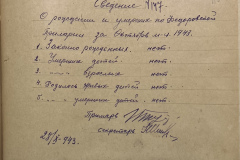 Сведение №7
О рождении и умерших по Федоровской
примарии за Октябрь м-ц 1943.
1. Законно рожденных. нет.
2. Умерших детей. нет.
3. " взрослых нет.
4. Родилось живых детей нет.
5. умерших детей нет.
Примарь
секретарь
28/X-943.